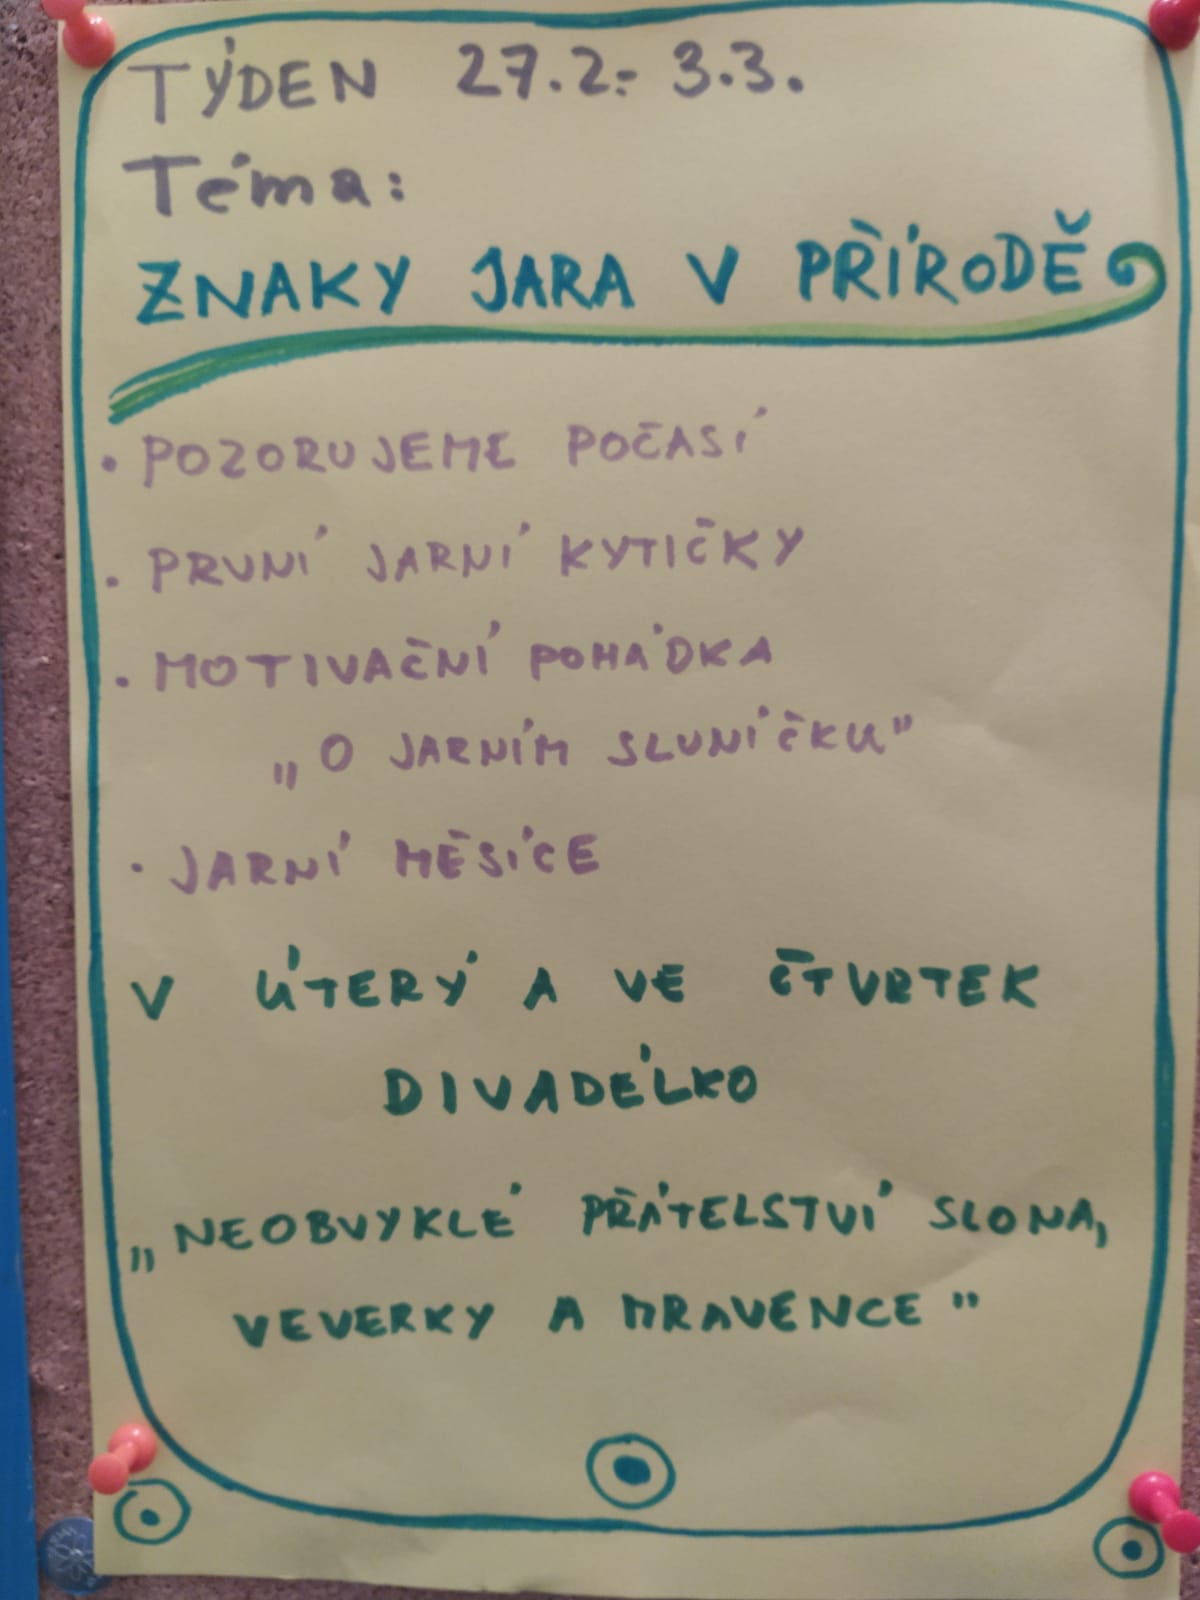 TÝDEN 27.2.- 3.3.
Téma:
ZNAKY JARA V PŘÍRODĚ
• POZORUJEME POČASÍ
• PRVNÍ JARNÍ KYTIČKY
• MOTIVAČNÍ POHÁDKA
„O JARNÍM SLUNÍČKU"
• JARNÍ MĚSÍCE
V ÚTERÝ A VE ČTVRTEK
DIVADÉLKO
„NEOBVYKLÉ PŘÁTELSTVÍ SLONA,
VEVERKY A MRAVENCE"